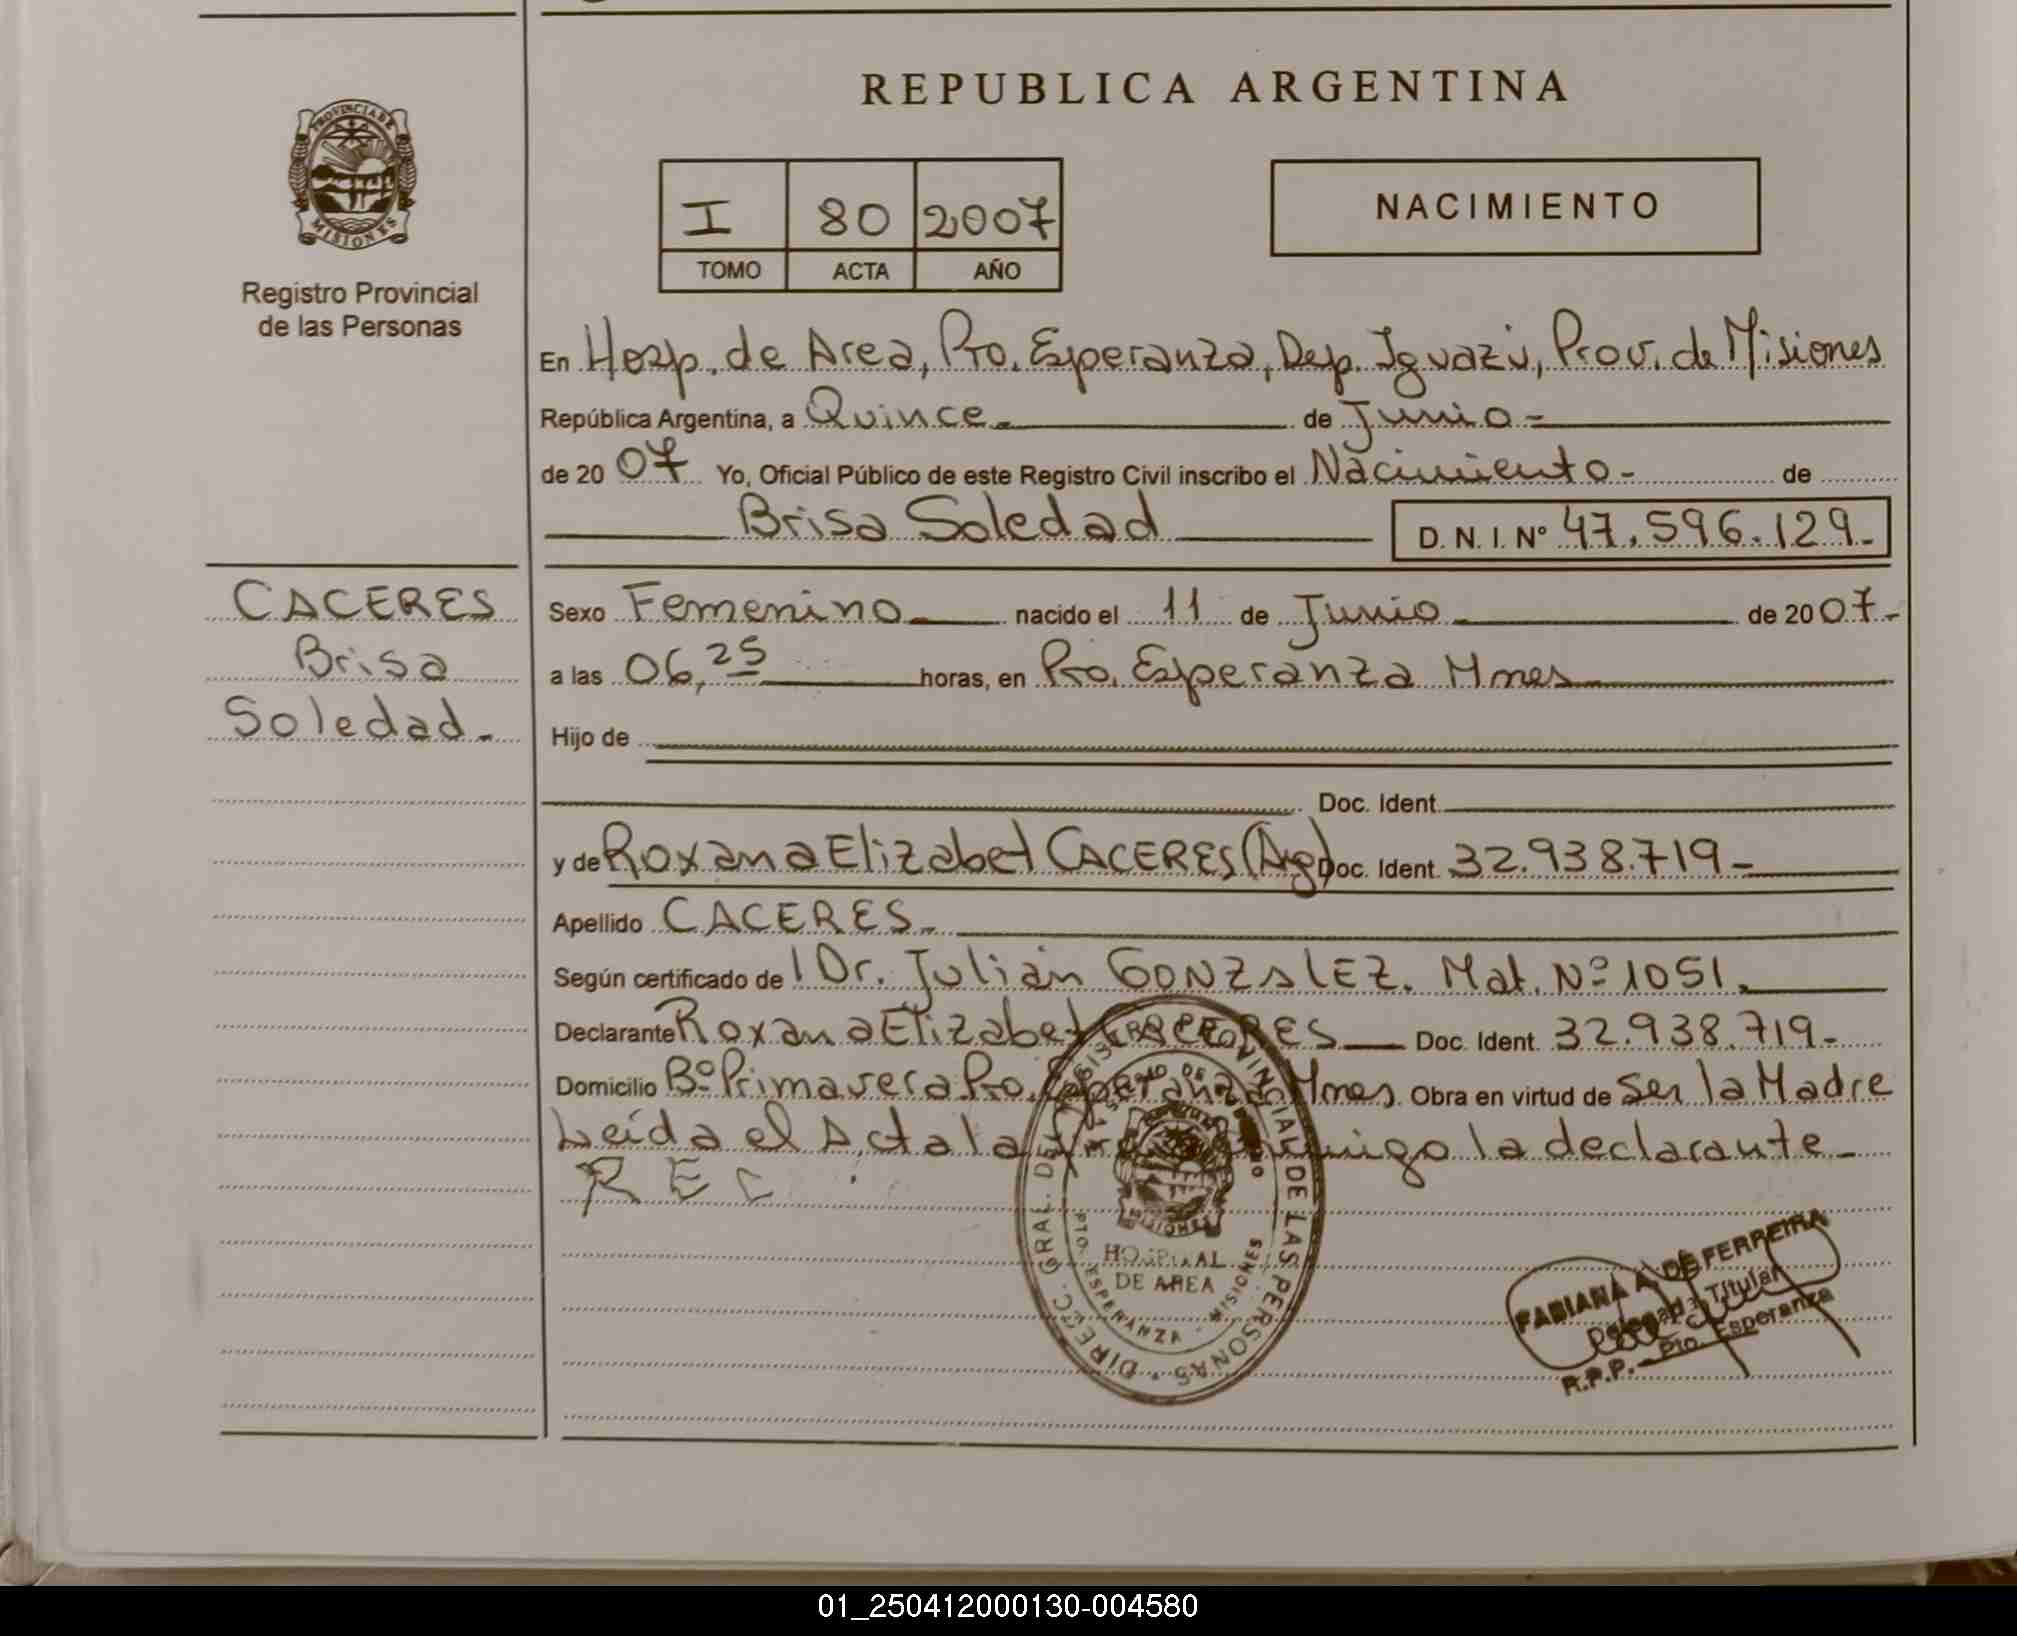 REPUBLICA ARGENTINA
PROVINCIA DE
MISIONES
Registro Provincial
de las Personas
I 80 2007
TOMO ACTA AÑO
NACIMIENTO
En Hosp. de Area, Pto. Esperanza, Dep. Iguazú, Prov. de Misiones
República Argentina, a Quince de Junio
de 2007 Yo, Oficial Público de este Registro Civil inscribo el Nacimiento de
Brisa Soledad D. N. I. Nº 47.596.129.
CACERES
Brisa
Soledad
Sexo Femenino nacido el 11 de Junio de 2007
a las 06,25 horas, en Pto. Esperanza Mnes
Hijo de
Doc. Ident.
y de Roxana Elizabet CACERES (Arg) Doc. Ident. 32.938.719
Apellido CACERES
Según certificado de l Dr. Julián GONZALEZ. Mat. Nº 1051.
Declarante Roxana Elizabet CACERES Doc. Ident. 32.938.719
Domicilio Bº Primavera Pto. Esperanza Mnes Obra en virtud de Ser la Madre
Leída el Acta la conmigo la declarante
R E C
DIREC. GRAL. DEL REGISTRO PROVINCIAL DE LAS PERSONAS
MISIONES
HOSPITAL
DE AREA
PTO. ESPERANZA - MISIONES
FABIANA A. DE FERREIRA
Delegada Titular
R.P.P. - Pto. Esperanza
01_250412000130-004580